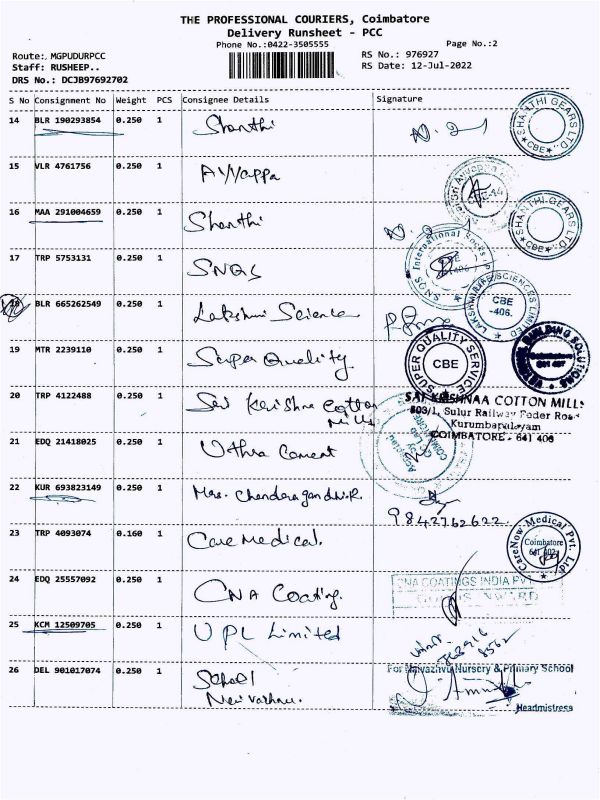 THE PROFESSIONAL COURIERS, Coimbatore
Delivery Runsheet - PCC
Phone No.:0422-3505555
Page No.:2
Route: MGPUDURPCC
RS No.: 976927
Staff: RUSHEEP..
RS Date: 12-Jul-2022
DRS No.: DCJB97692702
S No Consignment No Weight PCS Consignee Details Signature
14 BLR 190293854 0.250 1 Shanthi
SHANTHI GEARS LTD. CBE
15 VLR 4761756 0.250 1 Ayyappa
16 MAA 291004659 0.250 1 Shanthi
SHANTHI GEARS LTD. CBE
17 TRP 5753131 0.250 1 SNQS
SNQS International Socks
18 BLR 665262549 0.250 1 Lakshmi Science
SCIENCES LIMITED CBE -406.
19 MTR 2239110 0.250 1 Super Quality
SUPER QUALITY SERVICE CBE
BUILDING SOLUTIONS
20 TRP 4122488 0.250 1 Sri Krishna Cotton Mills
SRI KRISHNAA COTTON MILLS
803/1, Sulur Railway Feder Road
Kurumbapalayam
COIMBATORE - 641 406
21 EDQ 21418025 0.250 1 Uthra Cement
22 KUR 693823149 0.250 1 Mrs. Chandragandhi.R
9842762622
23 TRP 4093074 0.160 1 Care Medical.
CareNow Medical Pvt. Ltd. Coimbatore 641 402
24 EDQ 25557092 0.250 1 CNA Coating.
CNA COATINGS INDIA PVT
GOODS INWARD
25 KCM 12509705 0.250 1 UPL Limited
26 DEL 901017074 0.250 1 School
For Naivazhvu Nursery & Primary School
Headmistress